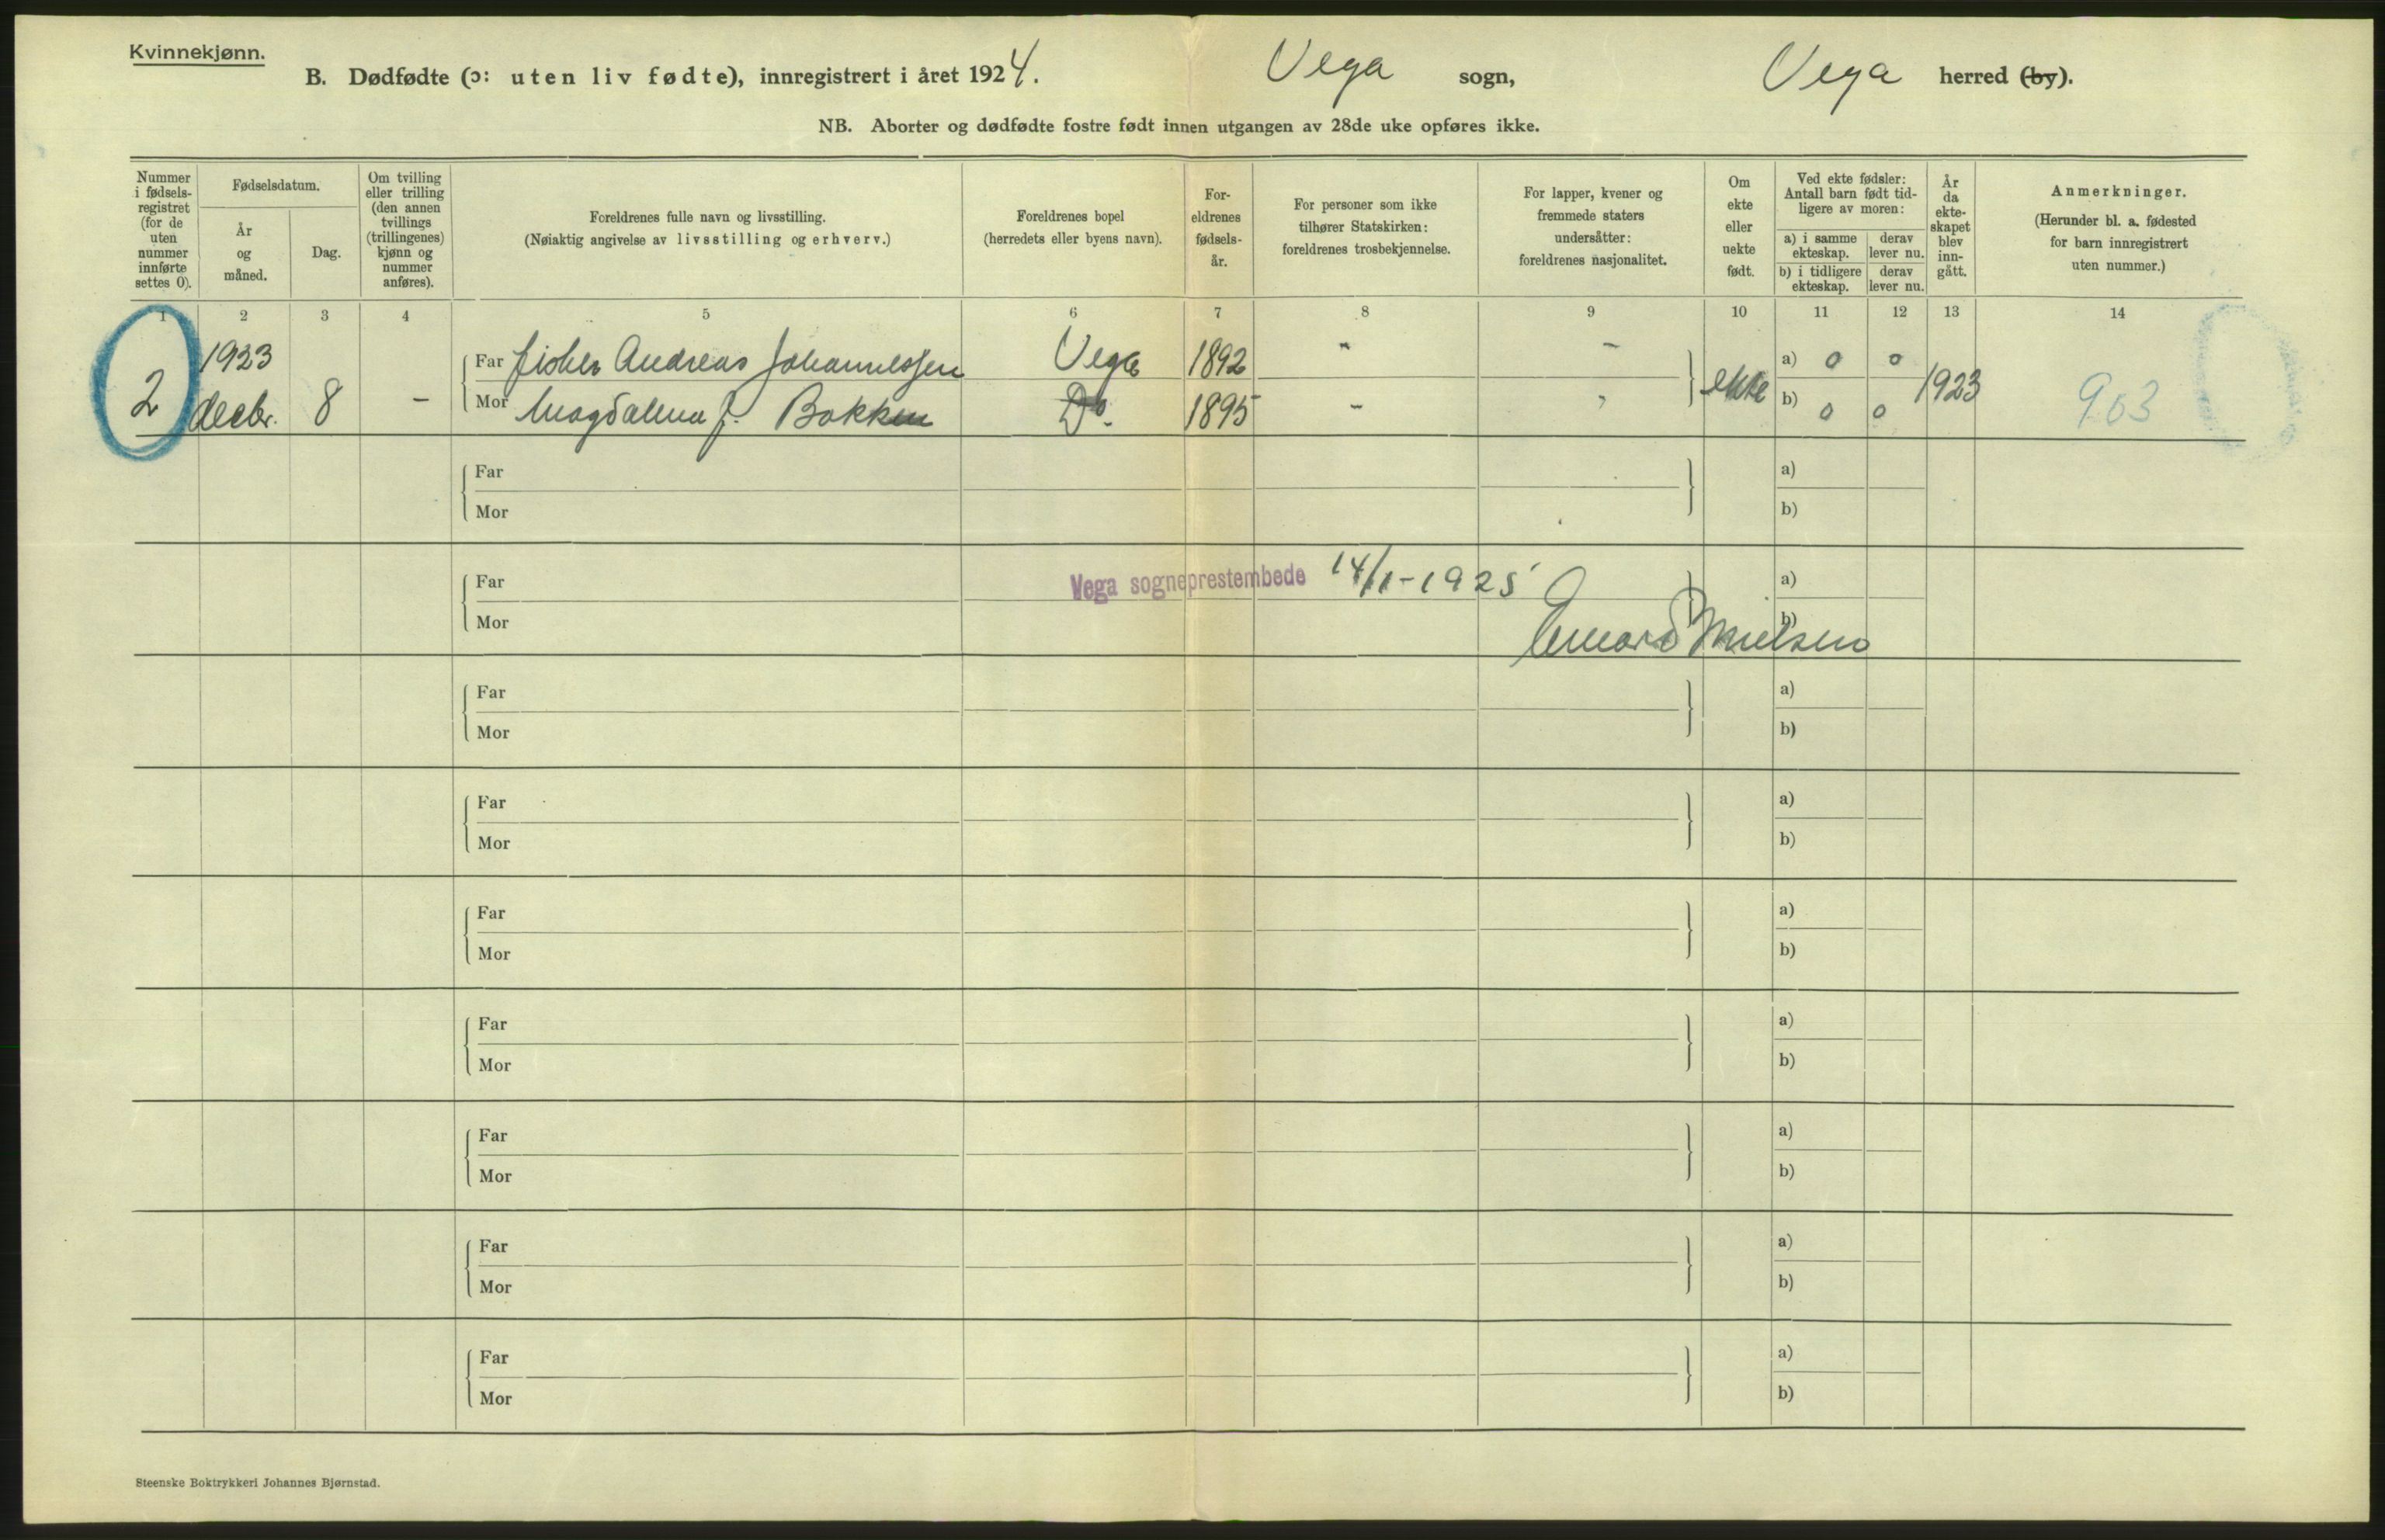 Kvinnekjønn.
B. Dødfødte (ɔ: uten liv fødte), innregistrert i året 1924. Vega sogn, Vega herred (by).
NB. Aborter og dødfødte fostre født innen utgangen av 28de uke opføres ikke.
Nummer i fødsels-registret (for de uten nummer innførte settes 0).
Fødselsdatum.
År og måned.
Dag.
Om tvilling eller trilling (den annen tvillings (trillingenes) kjønn og nummer anføres).
Foreldrenes fulle navn og livsstilling.
(Nøiaktig angivelse av livsstilling og erhverv.)
Foreldrenes bopel
(herredets eller byens navn).
For-eldrenes fødsels-år.
For personer som ikke tilhører Statskirken: foreldrenes trosbekjennelse.
For lapper, kvener og fremmede staters undersåtter: foreldrenes nasjonalitet.
Om ekte eller uekte født.
Ved ekte fødsler: Antall barn født tid-ligere av moren:
a) i samme ekteskap.
derav lever nu.
b) i tidligere ekteskap.
derav lever nu.
År da ekte-skapet blev inn-gått.
Anmerkninger.
(Herunder bl. a. fødested for barn innregistrert uten nummer.)
1 2 3 4 5 6 7 8 9 10 11 12 13 14
1923 Far fisker Andreas Johannessen Vega 1892 - - a) 0 0
2 decbr. 8 - Mor Magdalena J. Bakken Do. 1895 - ekte b) 0 0 1923 903
Far a)
Mor b)
Far Vega sogneprestembede 14/1-1925 a)
Mor b)
Far a)
Mor b)
Far a)
Mor b)
Far a)
Mor b)
Far a)
Mor b)
Far a)
Mor b)
Far a)
Mor b)
Far a)
Mor b)
Steenske Boktrykkeri Johannes Bjørnstad.